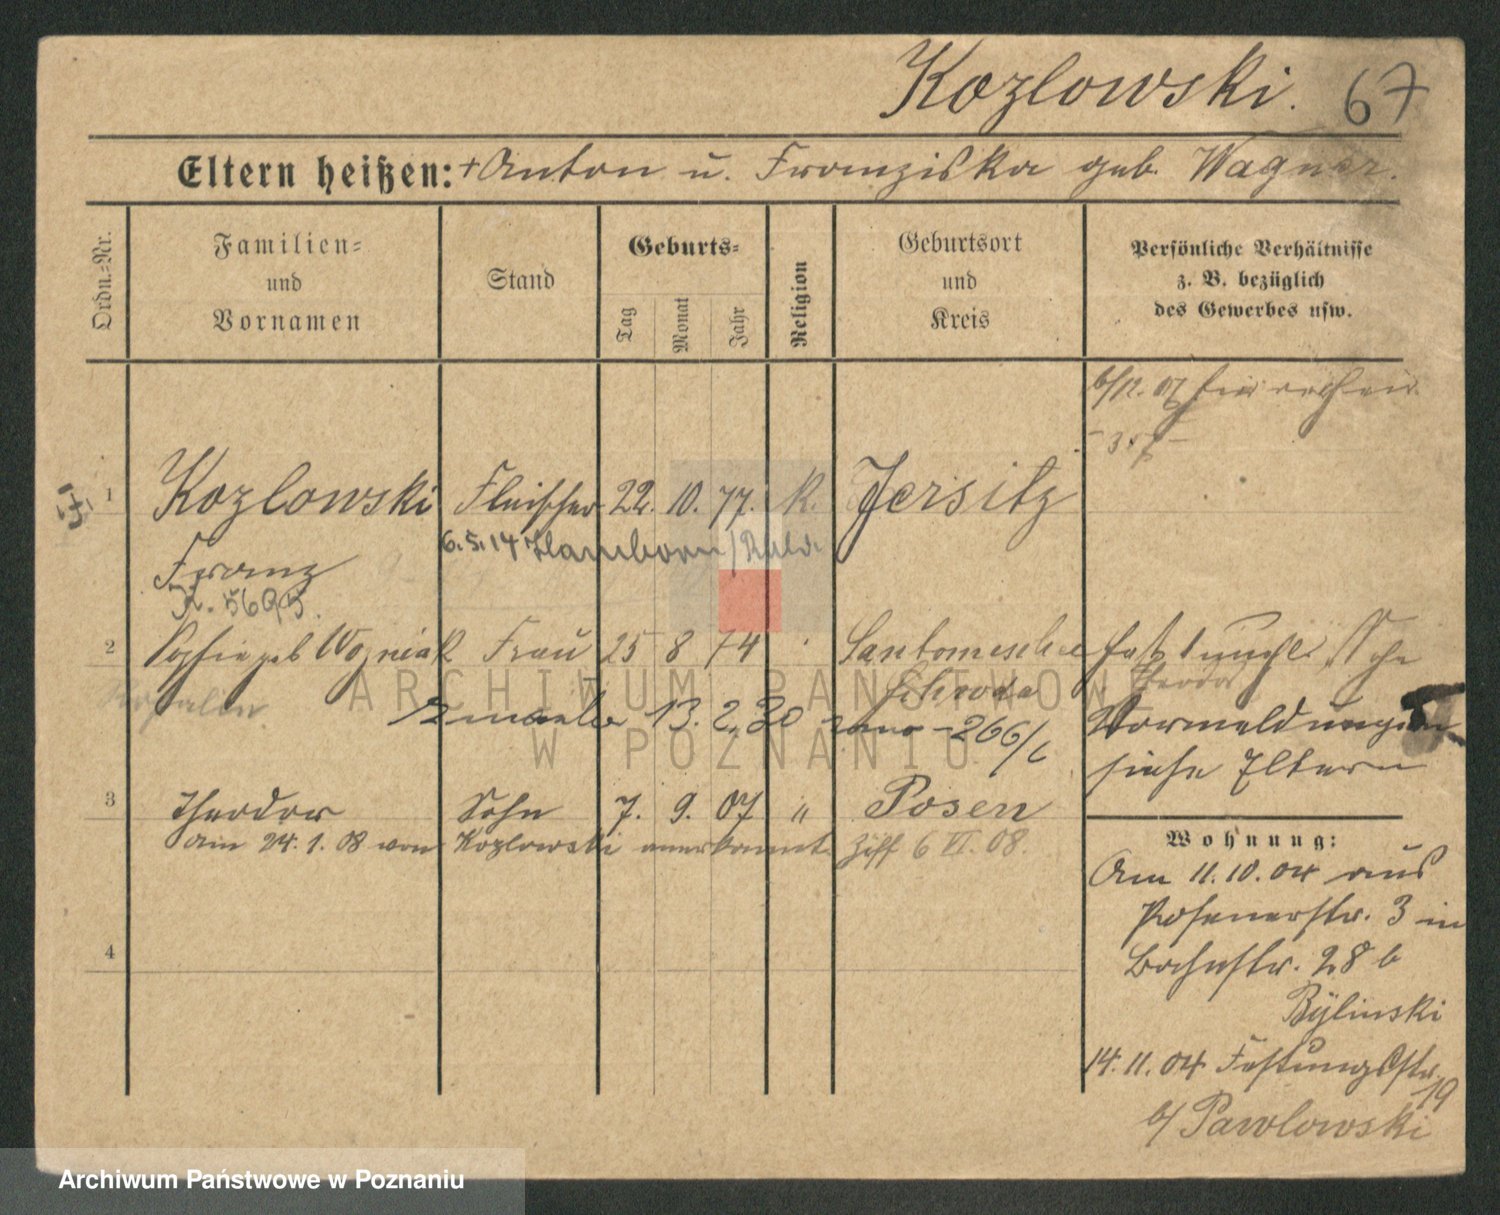 Kozlowski. 67
Eltern heißen: + Anton u. Franziska geb. Wagner.
Ordn.-Nr.
Familien-
und
Vornamen
Stand
Geburts-
Tag
Monat
Jahr
Religion
Geburtsort
und
Kreis
Persönliche Verhältnisse
z. B. bezüglich
des Gewerbes usw.
6/12. 07
1 Kozlowski Fleischer 22. 10. 77. K. Jersitz
6.5.14 Hamborn
Franz
K. 5695.
2 Sophie geb Wozniak Frau 25 8 74 Santomischel
Schroda
hat 1 unehl. Sohn
Theodor
13. 2. 20 266/
Vormeldungen
siehe Eltern
3 Theodor Sohn 7. 9. 07 " Posen
am 24. 1. 08 von Kozlowski anerkannt. Ziff 6 VI. 08.
4
Wohnung:
Am 11. 10. 04 aus
Posenerstr. 3 in
Bahnstr. 28 b
Bylinski
14. 11. 04 Festungsstr. 19
b/ Pawlowski
ARCHIWUM PAŃSTWOWE
W POZNANIU
Archiwum Państwowe w Poznaniu